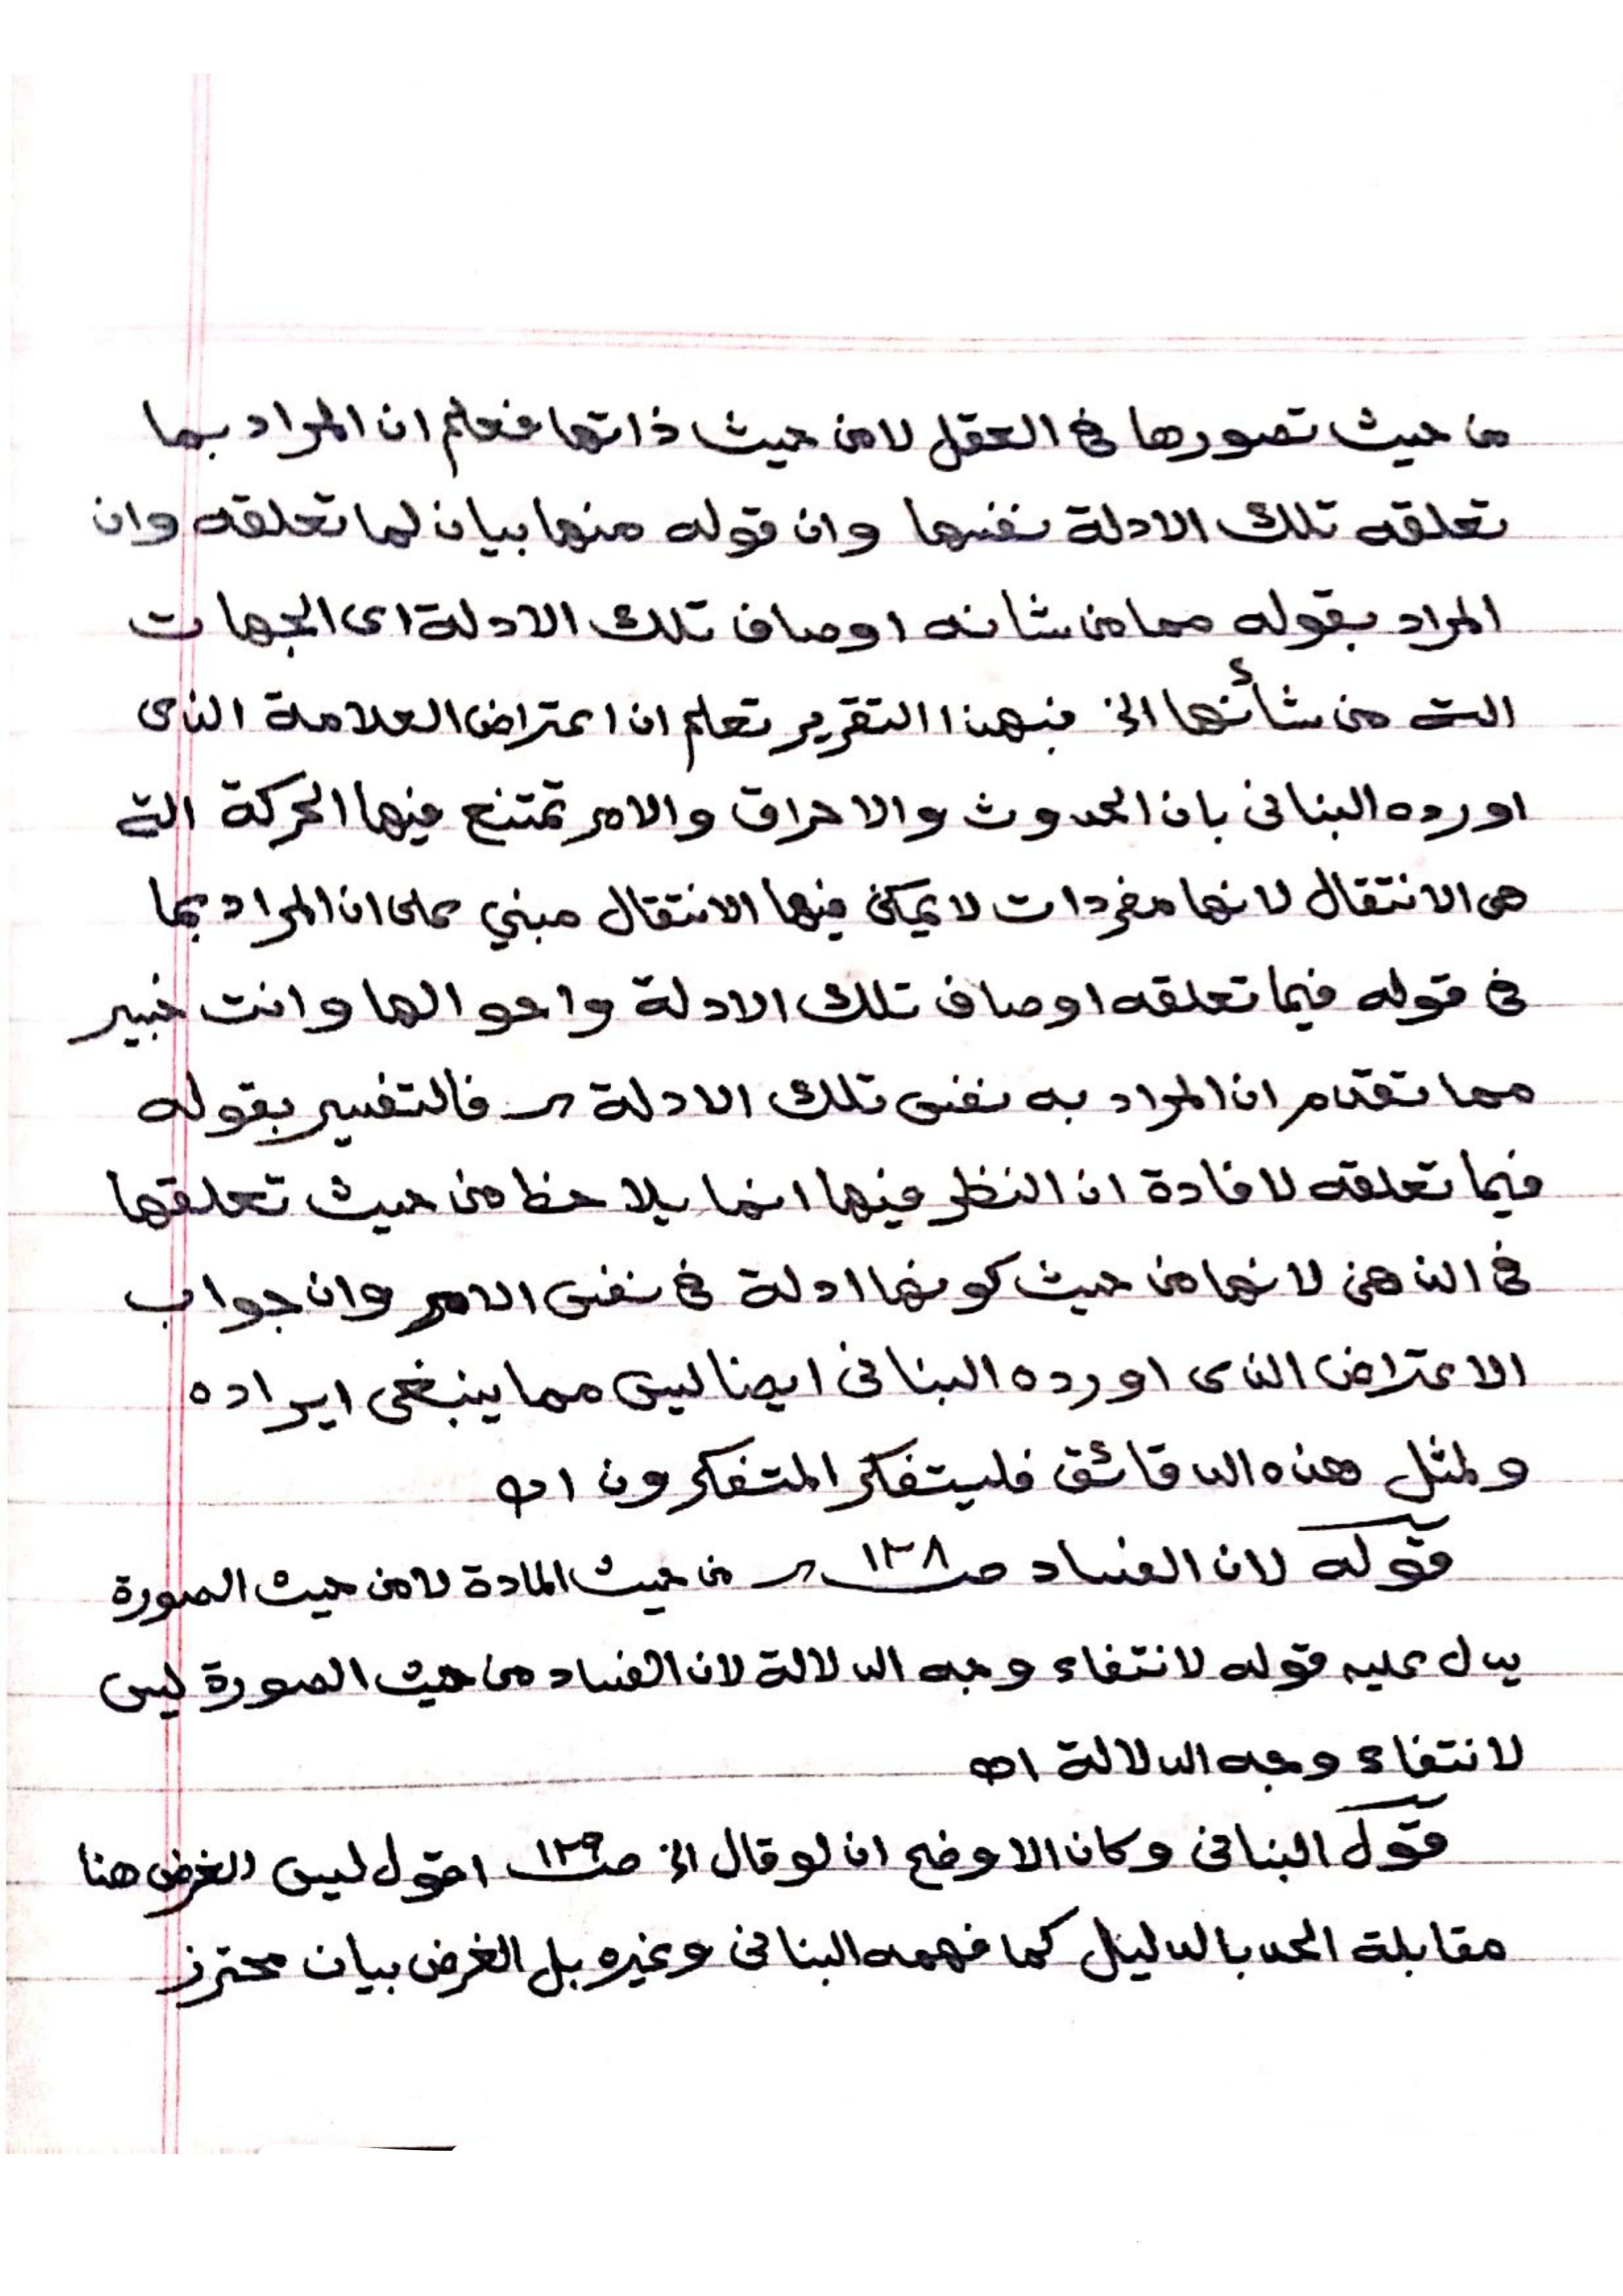 من حيث تصورها في العقل لا من حيث ذاتها فعلم ان المراد بما
تعلقه تلك الادلة نفسها وان قوله منها بيان لما تعلقه وان
المراد بقوله مما من شانه اوصاف تلك الادلة اى الجهات
التى من شأنها الخ فبهذا التقرير تعلم ان اعتراض العلامة الذى
اورده البنانى بان الحدوث والاحراق والامر تمتنع فيها الحركة التى
هى الانتقال لانها مفردات لا يمكن فيها الانتقال مبني على ان المراد بما
فى قوله فيما تعلقه اوصاف تلك الادلة واحوالها وانت خبير
مما تقدم ان المراد به نفس تلك الادلة فالتفسير بقوله
فيما تعلقه لافادة ان النظر فيها انما يلاحظ من حيث تعلقها
فى الذهن لانها من حيث كونها ادلة فى نفس الامر وان جواب
الاعتراض الذى اورده البنانى ايضا ليس مما ينبغى ايراده
ولمثل هذه الدقائق فليتفكر المتفكرون اه
قوله لان الفساد صـ ١٣٨ من حيث المادة لا من حيث الصورة
يدل عليه قوله لانتفاء وجه الدلالة لان الفساد من حيث الصورة ليس
لانتفاء وجه الدلالة اه
قول البنانى وكان الاوضح ان لو قال الخ صـ ١٣٩ اقول ليس الغرض هنا
مقابلة الحد بالدليل كما فهمه البنانى وغيره بل الغرض بيان محترز